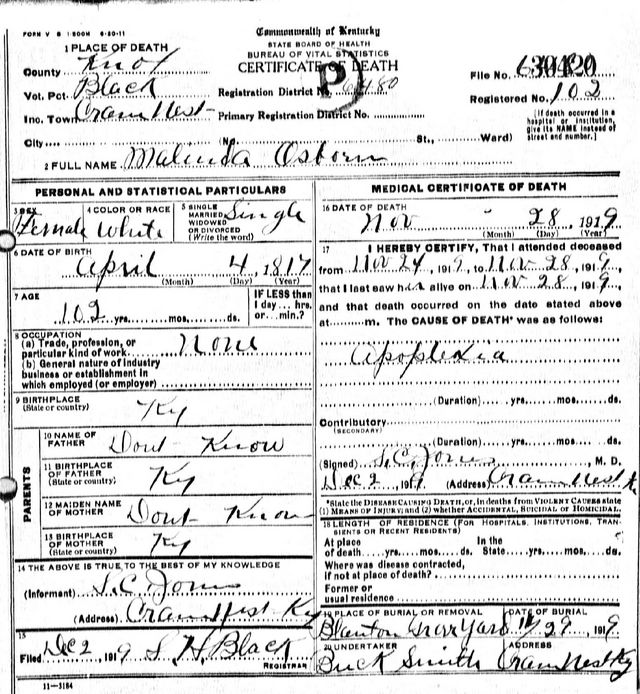 FORM V S 1 500M 6-20-11
Commonwealth of Kentucky
STATE BOARD OF HEALTH
BUREAU OF VITAL STATISTICS
CERTIFICATE OF DEATH
1 PLACE OF DEATH
County Knox
Vot. Pct. Black
Registration District No. 6480
File No.
Inc. Town Crane Nest
Primary Registration District No.
Registered No. 102
City (No. St., Ward)
[If death occurred in a hospital or institution, give its NAME instead of street and number.]
2 FULL NAME Malinda Osborn
PERSONAL AND STATISTICAL PARTICULARS
3 SEX Female
4 COLOR OR RACE White
5 SINGLE MARRIED WIDOWED OR DIVORCED (Write the word) Single
6 DATE OF BIRTH
April 4, 1817
(Month) (Day) (Year)
7 AGE
102 yrs. mos. ds.
IF LESS than 1 day hrs. or min.?
8 OCCUPATION
(a) Trade, profession, or particular kind of work None
(b) General nature of industry business or establishment in which employed (or employer)
9 BIRTHPLACE
(State or country) Ky
PARENTS
10 NAME OF FATHER Dont Know
11 BIRTHPLACE OF FATHER (State or country) Ky
12 MAIDEN NAME OF MOTHER Dont Know
13 BIRTHPLACE OF MOTHER (State or country) Ky
14 THE ABOVE IS TRUE TO THE BEST OF MY KNOWLEDGE
(Informant) S.C. Jones
(Address) Crane Nest Ky
15
Filed Dec 2, 1919 S H Black
REGISTRAR
11—3184
MEDICAL CERTIFICATE OF DEATH
16 DATE OF DEATH
Nov 28, 1919
(Month) (Day) (Year)
17 I HEREBY CERTIFY, That I attended deceased
from Nov 24, 1919, to Nov 28, 1919,
that I last saw her alive on Nov 28, 1919
and that death occurred on the date stated above
at m. The CAUSE OF DEATH* was as follows:
Apoplexia
(Duration) yrs. mos. ds.
Contributory
(SECONDARY)
(Duration) yrs. mos. ds.
(Signed) S.C. Jones, M. D.
Dec 2, 1919 (Address) Crane Nest K
*State the DISEASE CAUSING DEATH, or, in deaths from VIOLENT CAUSES state (1) MEANS OF INJURY; and (2) whether ACCIDENTAL, SUICIDAL or HOMICIDAL.
18 LENGTH OF RESIDENCE (FOR HOSPITALS, INSTITUTIONS, TRANSIENTS OR RECENT RESIDENTS)
At place of death yrs. mos. ds. In the State yrs. mos. ds.
Where was disease contracted, if not at place of death?
Former or usual residence
19 PLACE OF BURIAL OR REMOVAL
Blanton Grav Yard
DATE OF BURIAL
11/29 1919
20 UNDERTAKER
Buck Smith
ADDRESS
Crane Nest Ky